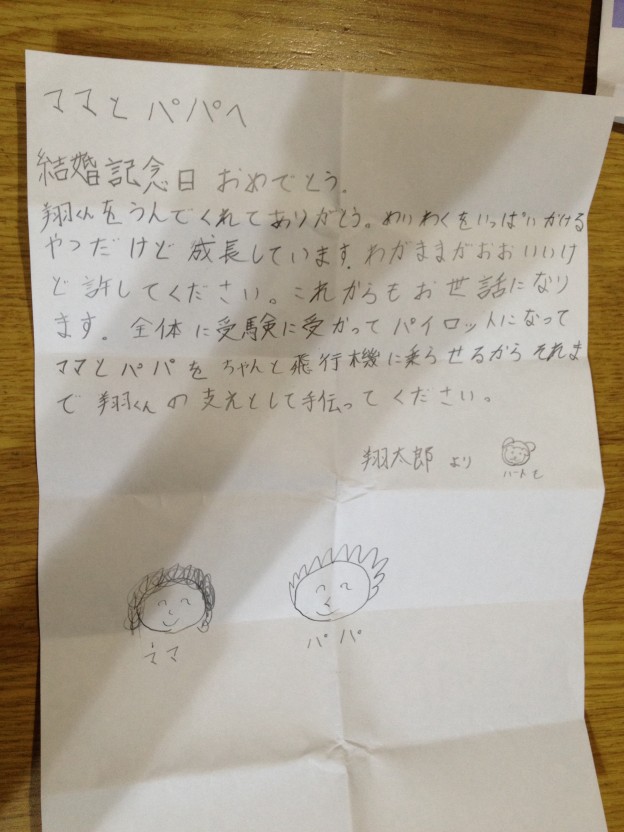 ママとパパへ
結婚記念日おめでとう.
翔くんをうんでくれてありがとう。めいわくをいっぱいかける
やつだけど成長しています.わがままがおおいいけ
ど許してください。これからもお世話になり
ます。全体に受験に受かってパイロットになって
ママとパパをちゃんと飛行機に乗らせるからそれま
で翔くんの支えとして手伝ってください。
翔太郎より
ママ
パパ